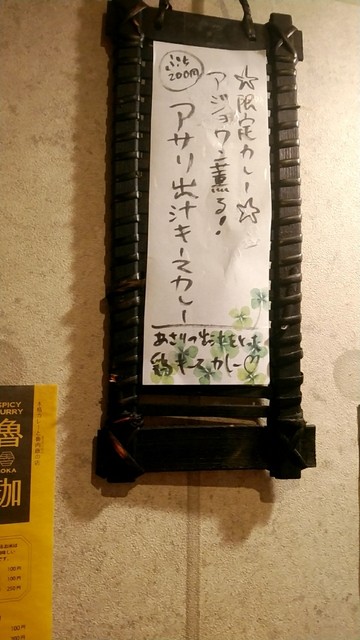 ☆限定カレー☆
アジョワン薫る!
アサリ出汁キーマカレー
ぷち
200円
あさりの出汁をとった
鶏キーマカレー♡
SPICY
CURRY
魯
OKA
珈
100円
100円
250円
100円